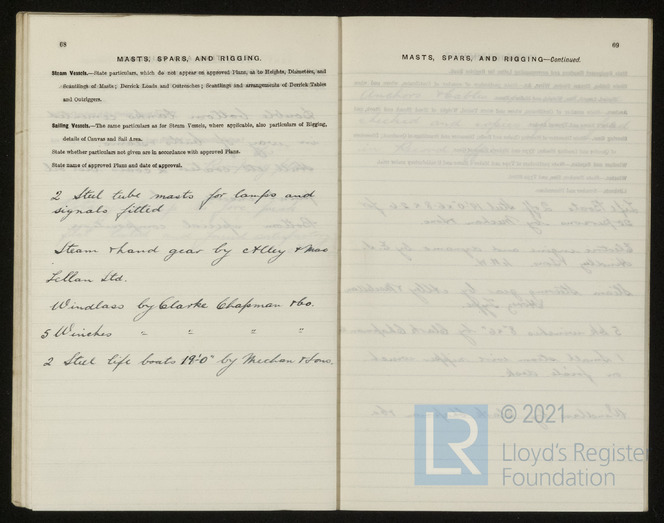 68
MASTS, SPARS, AND RIGGING.
Steam Vessels.—State particulars, which do not appear on approved Plans, as to Heights, Diameters, and
Scantlings of Masts; Derrick Loads and Outreaches; Scantlings and arrangements of Derrick Tables
and Outriggers.
Sailing Vessels.—The same particulars as for Steam Vessels, where applicable, also particulars of Rigging,
details of Canvas and Sail Area.
State whether particulars not given are in accordance with approved Plans.
State name of approved Plans and date of approval.
2 Steel tube masts for lamps and
signals fitted
Steam & hand gear by Alley & Mac
Lellan Ltd.
Windlass by Clarke Chapman & Co.
5 Winches " " " "
2 Steel life boats 19'-0" by Mechan & Sons.
69
MASTS, SPARS, AND RIGGING—Continued.
LR © 2021
Lloyd's Register
Foundation